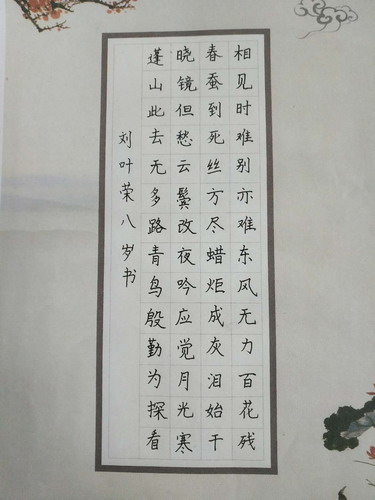 相见时难别亦难东风无力百花残
春蚕到死丝方尽蜡炬成灰泪始干
晓镜但愁云鬓改夜吟应觉月光寒
蓬山此去无多路青鸟殷勤为探看
刘叶荣八岁书